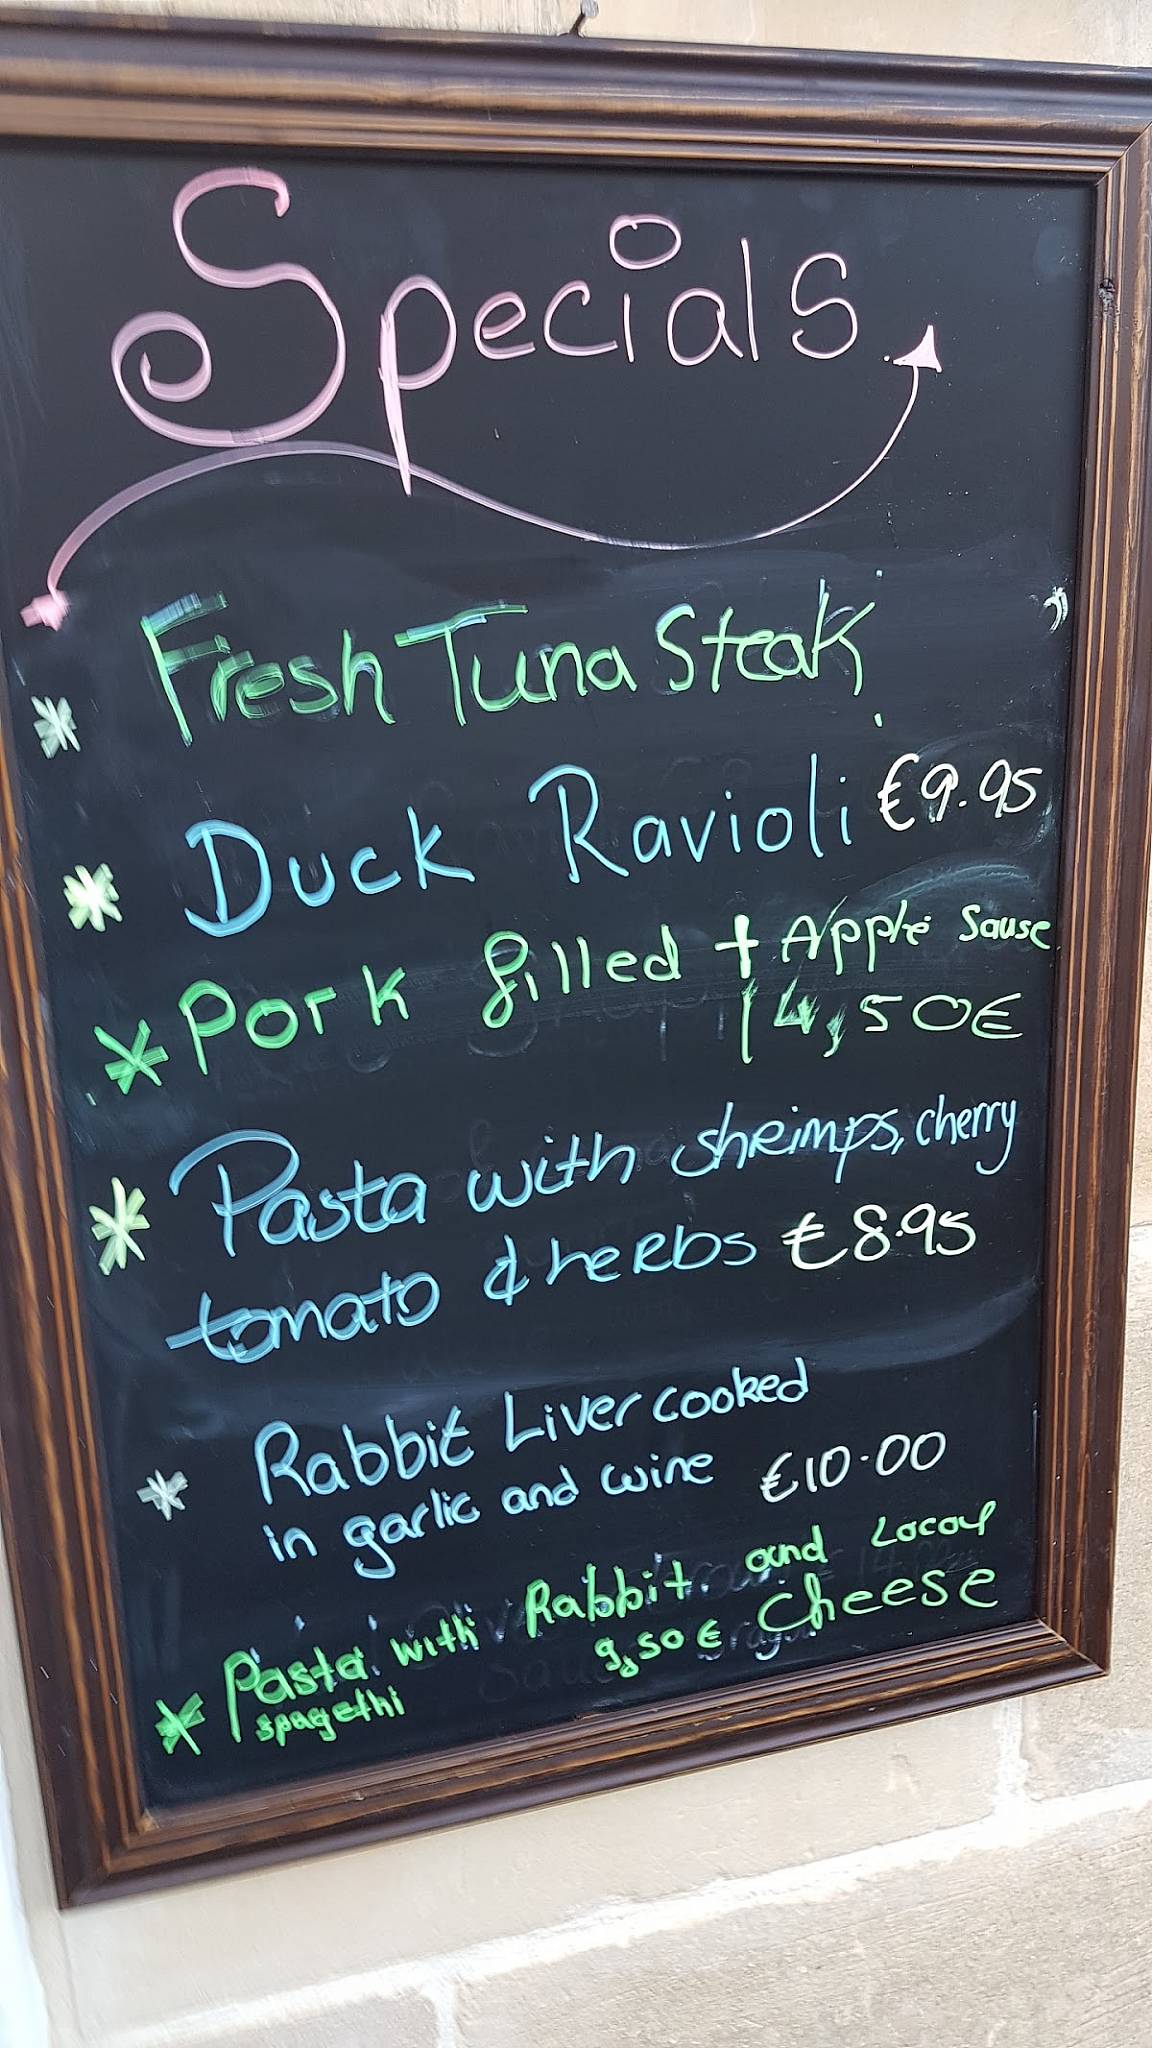 Specials
* Fresh Tuna Steak
* Duck Ravioli €9.95
* Pork filled + Apple Sause
14,50€
* Pasta with shrimps, cherry
tomato & herbs €8.95
* Rabbit Liver cooked
in garlic and wine €10.00
* Pasta with Rabbit and Local
spagethi 9,50€ Cheese